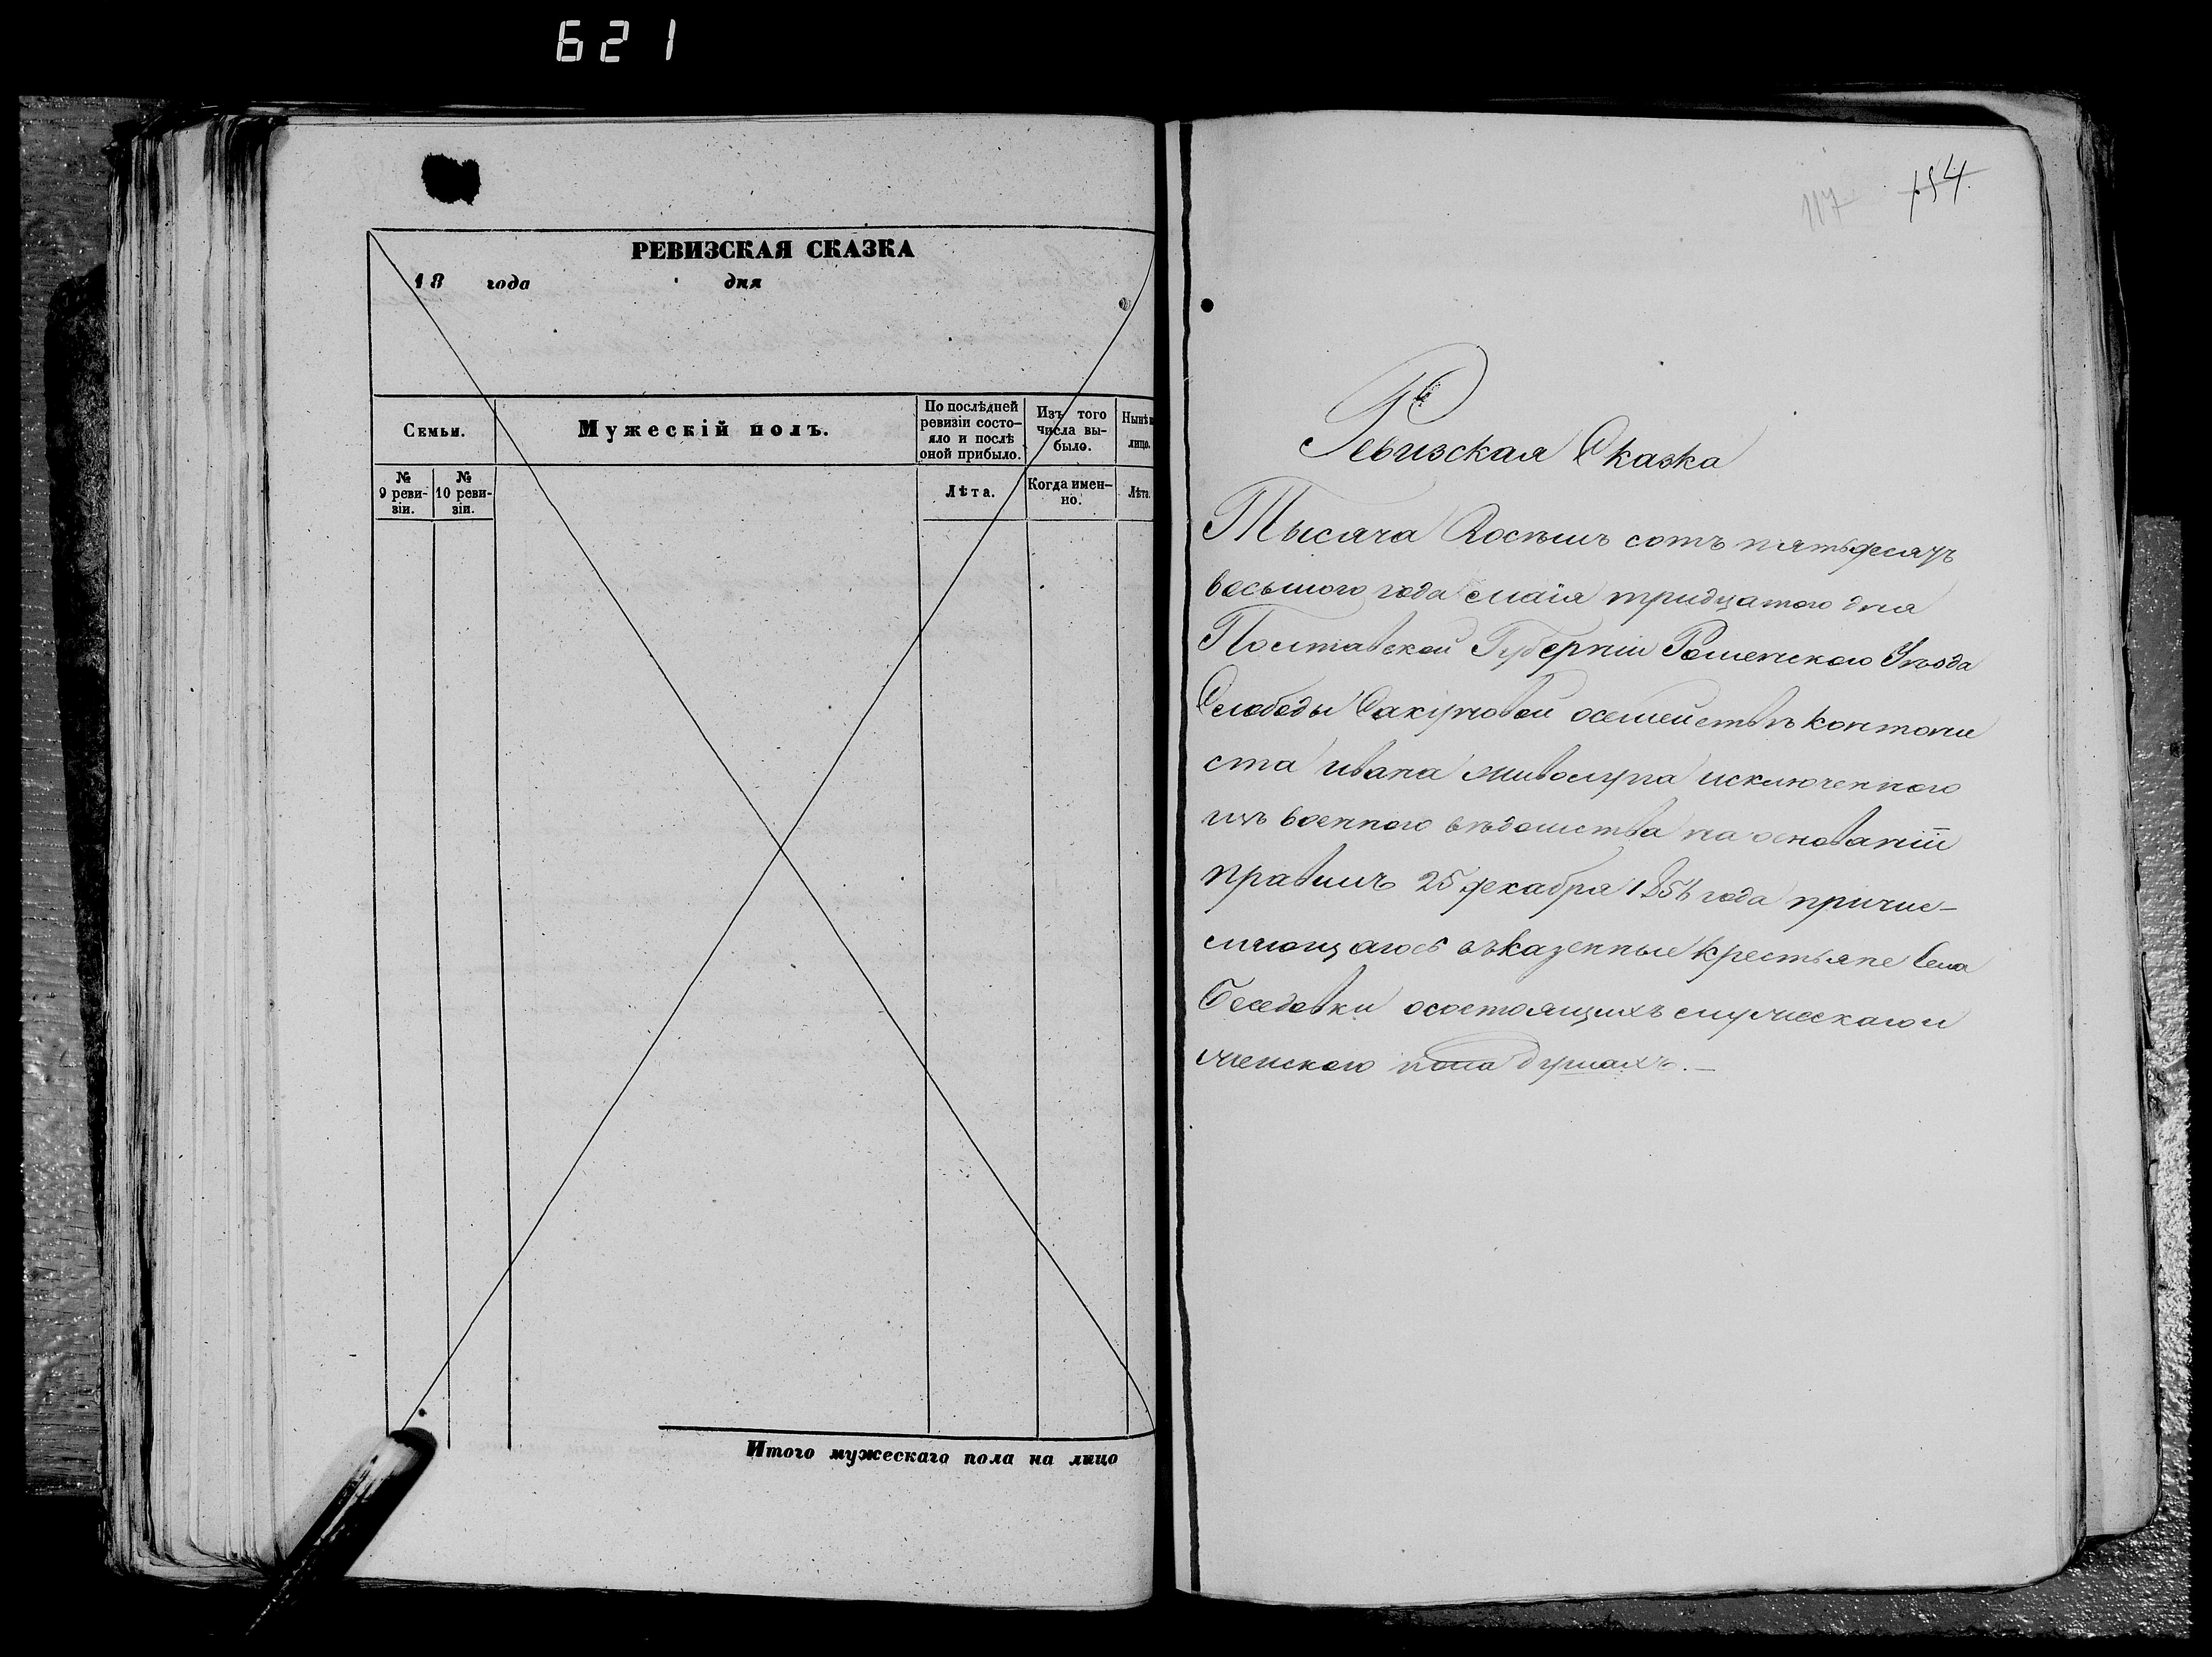 621
РЕВИЗСКАЯ СКАЗКА
18 года дня
Семьи.
Мужескій полъ.
По послѣдней
ревизіи состо-
яло и послѣ
оной прибыло.
Изъ того
числа вы-
было.
Нынѣ
лицо.
№
9 реви-
зіи.
№
10 реви-
зіи.
Лѣта.
Когда имен-
но.
Лѣта.
Итого мужескаго пола на лицо
117
154.
Ревизская Сказка
Тысяча Восѣмь сотъ пятьдесятъ
восьмого года маія тридцатого дня
Полтавской Губерніи Роменского Уѣзда
Слободы осемействѣ контони
ста ивана исключенного
изъ военного вѣдомства на основаніи
правилъ 25 декабря 1856 года причис-
ляющагось въказенные крестьяне Села
Беседовки осостоящихъ мужескаго и
женского пола душахъ.-